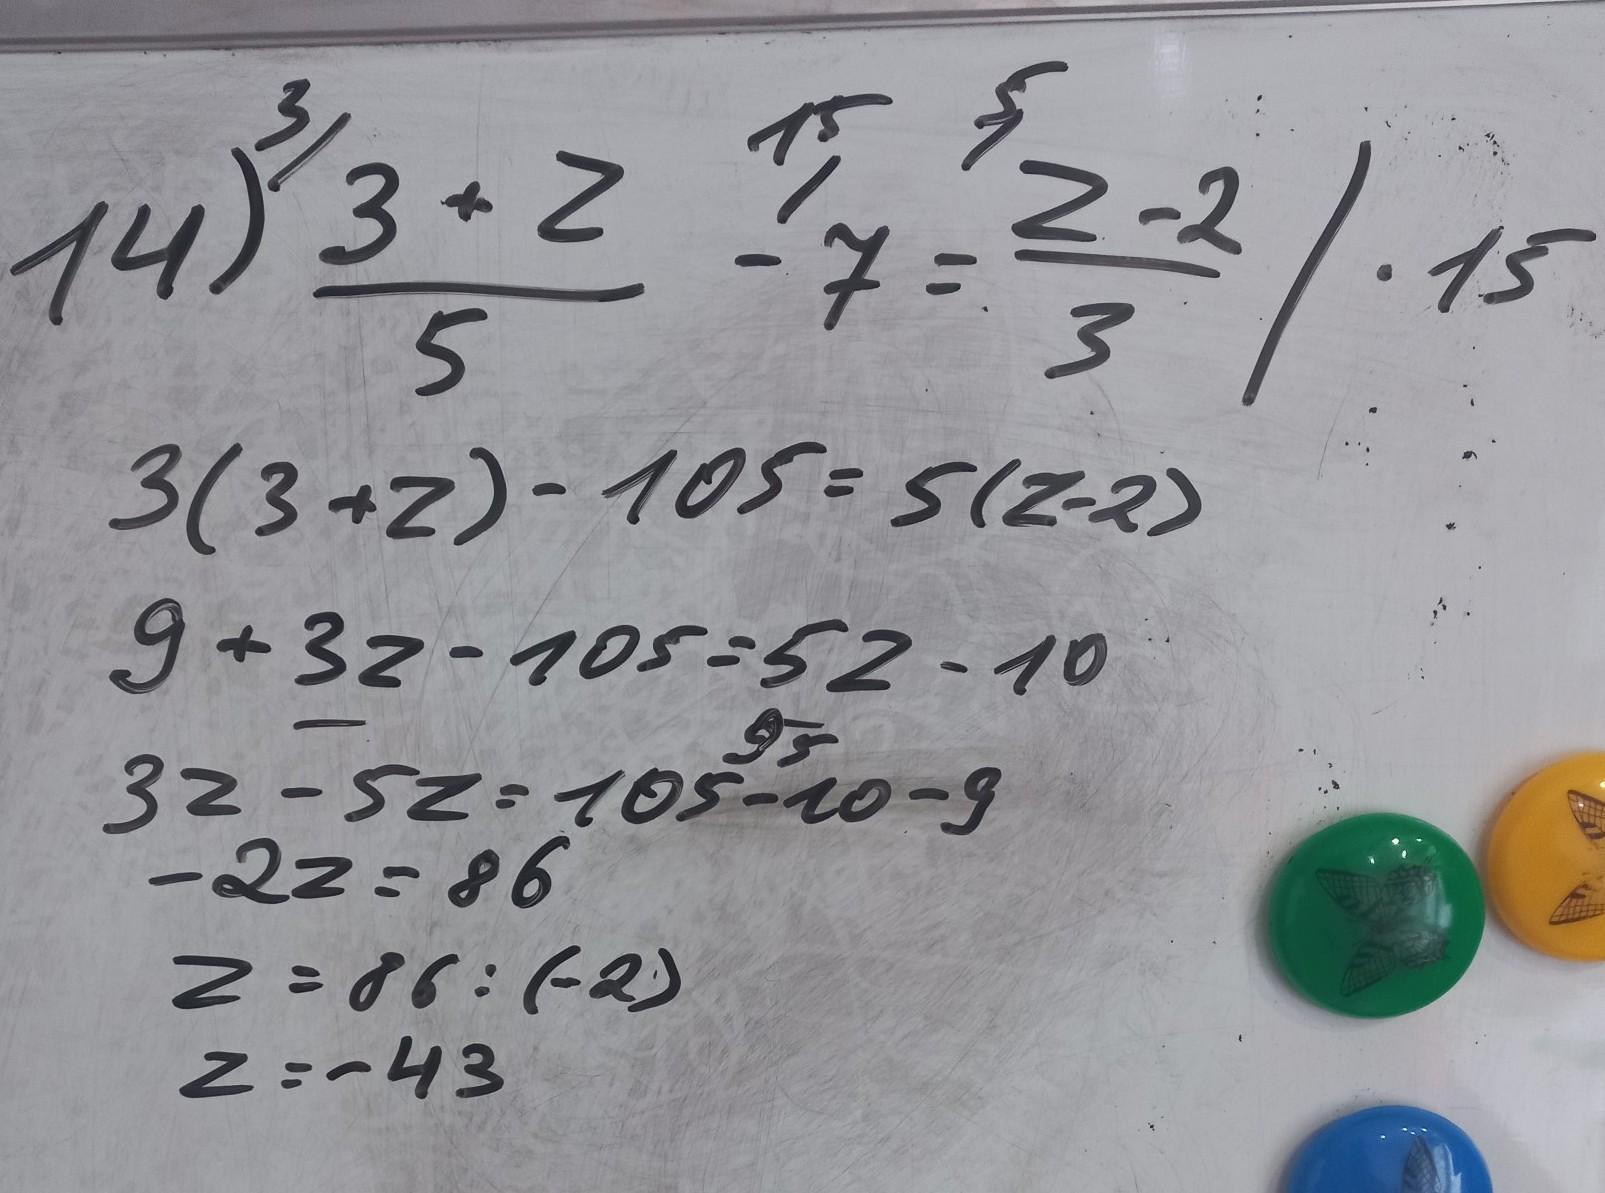 14) 3/ 3+z/5 15/ -7 = 5/ z-2/3 / · 15
3(3+z)-105=5(z-2)
9+3z-105=5z-10
95
3z-5z=105-10-9
-2z=86
z=86:(-2)
z=-43